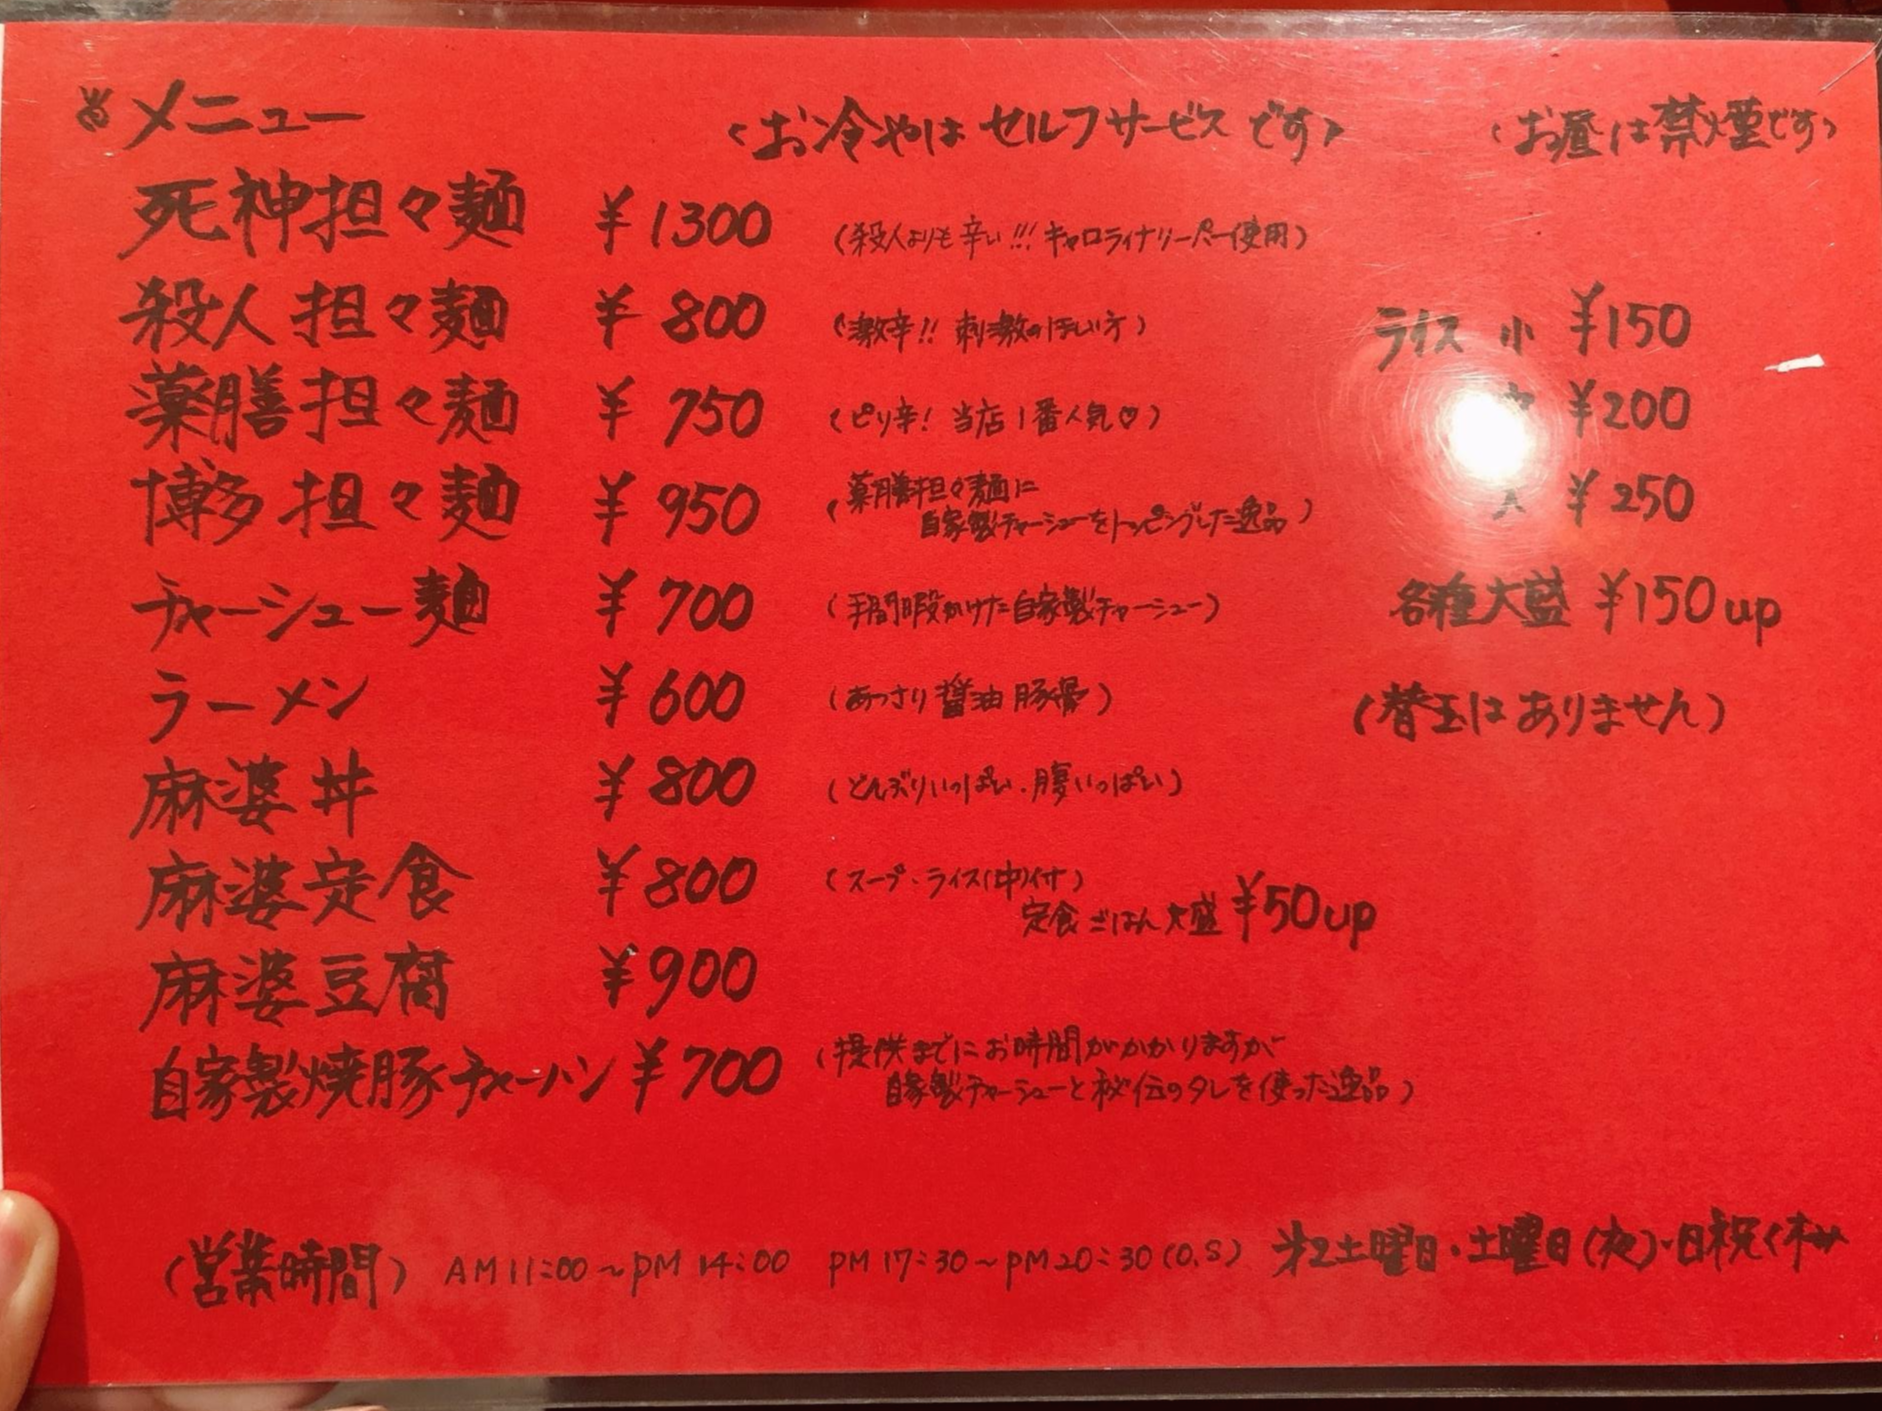 メニュー 〈お冷やは セルフサービス です〉 〈お昼は禁煙です〉
死神担々麺 ¥1300 (殺人よりも辛い!!! キャロライナリーパー使用)
殺人担々麺 ¥800 (激辛!! 刺激のほしい方)
ライス 小 ¥150
薬膳担々麺 ¥750 (ピリ辛! 当店1番人気♡)
¥200
博多担々麺 ¥950 (薬膳担々麺に
自家製チャーシューをトッピングした逸品)
大 ¥250
チャーシュー麺 ¥700 (手間暇かけた自家製チャーシュー)
各種大盛 ¥150up
ラーメン ¥600 (あっさり醤油豚骨)
(替玉はありません)
麻婆丼 ¥800 (どんぶりいっぱい・腹いっぱい)
麻婆定食 ¥800 (スープ・ライス(中)付)
定食ごはん大盛 ¥50up
麻婆豆腐 ¥900
自家製焼豚チャーハン ¥700 (提供までにお時間がかかりますが
自家製チャーシューと秘伝のタレを使った逸品)
(営業時間) AM11:00~PM14:00 PM17:30~PM20:30(O.S) 第2土曜日・土曜日(夜)・日祝〈休み